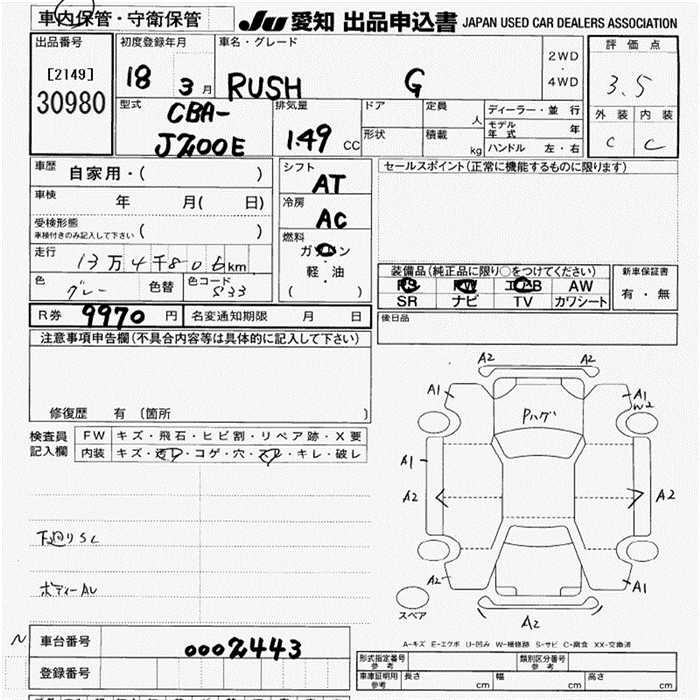 車内保管・守衛保管
JU 愛知 出品申込書 JAPAN USED CAR DEALERS ASSOCIATION
出品番号
[2149]
30980
初度登録年月
18 3 月
車名・グレード
RUSH G
2WD
・
4WD
評価点
3.5
外装 内装
C C
型式
CBA-
J200E
排気量
1.49 CC
ドア
形状
定員 人
積載 kg
ディーラー・並行
モデル年式 年
ハンドル 左・右
車歴 自家用・( )
車検 年 月( 日)
受検形態
車検付きのみ記入して下さい ( )
走行
13万4千806km
色 グレー 色替 色コード S33
シフト
AT
冷房
AC
燃料
ガソリン
軽・油
( )
セールスポイント(正常に機能するものに限ります)
装備品(純正品に限り○をつけてください)
PS PW エアB AW
SR ナビ TV カワシート
新車保証書
有・無
後日品
R券 9970 円 名変通知期限 月 日
注意事項申告欄(不具合内容等は具体的に記入して下さい)
修復歴 有 (箇所 )
検査員
記入欄
FW キズ・飛石・ヒビ割・リペア跡・X要
内装 キズ・汚レ・コゲ・穴・スレ・キレ・破レ
下廻りSC
ボディーAU
A2 A2
A1 A1
W2
Pハゲ
A1
A2 A2
A2 A1
スペア
A2
A-キズ E-エクボ U-凹み W-補修跡 S-サビ C-腐食 XX-交換済
N
車台番号 0002443
登録番号
形式指定番号
参考
類別区分番号
参考
車庫証明用
参考
長さ cm 幅 cm 高さ cm